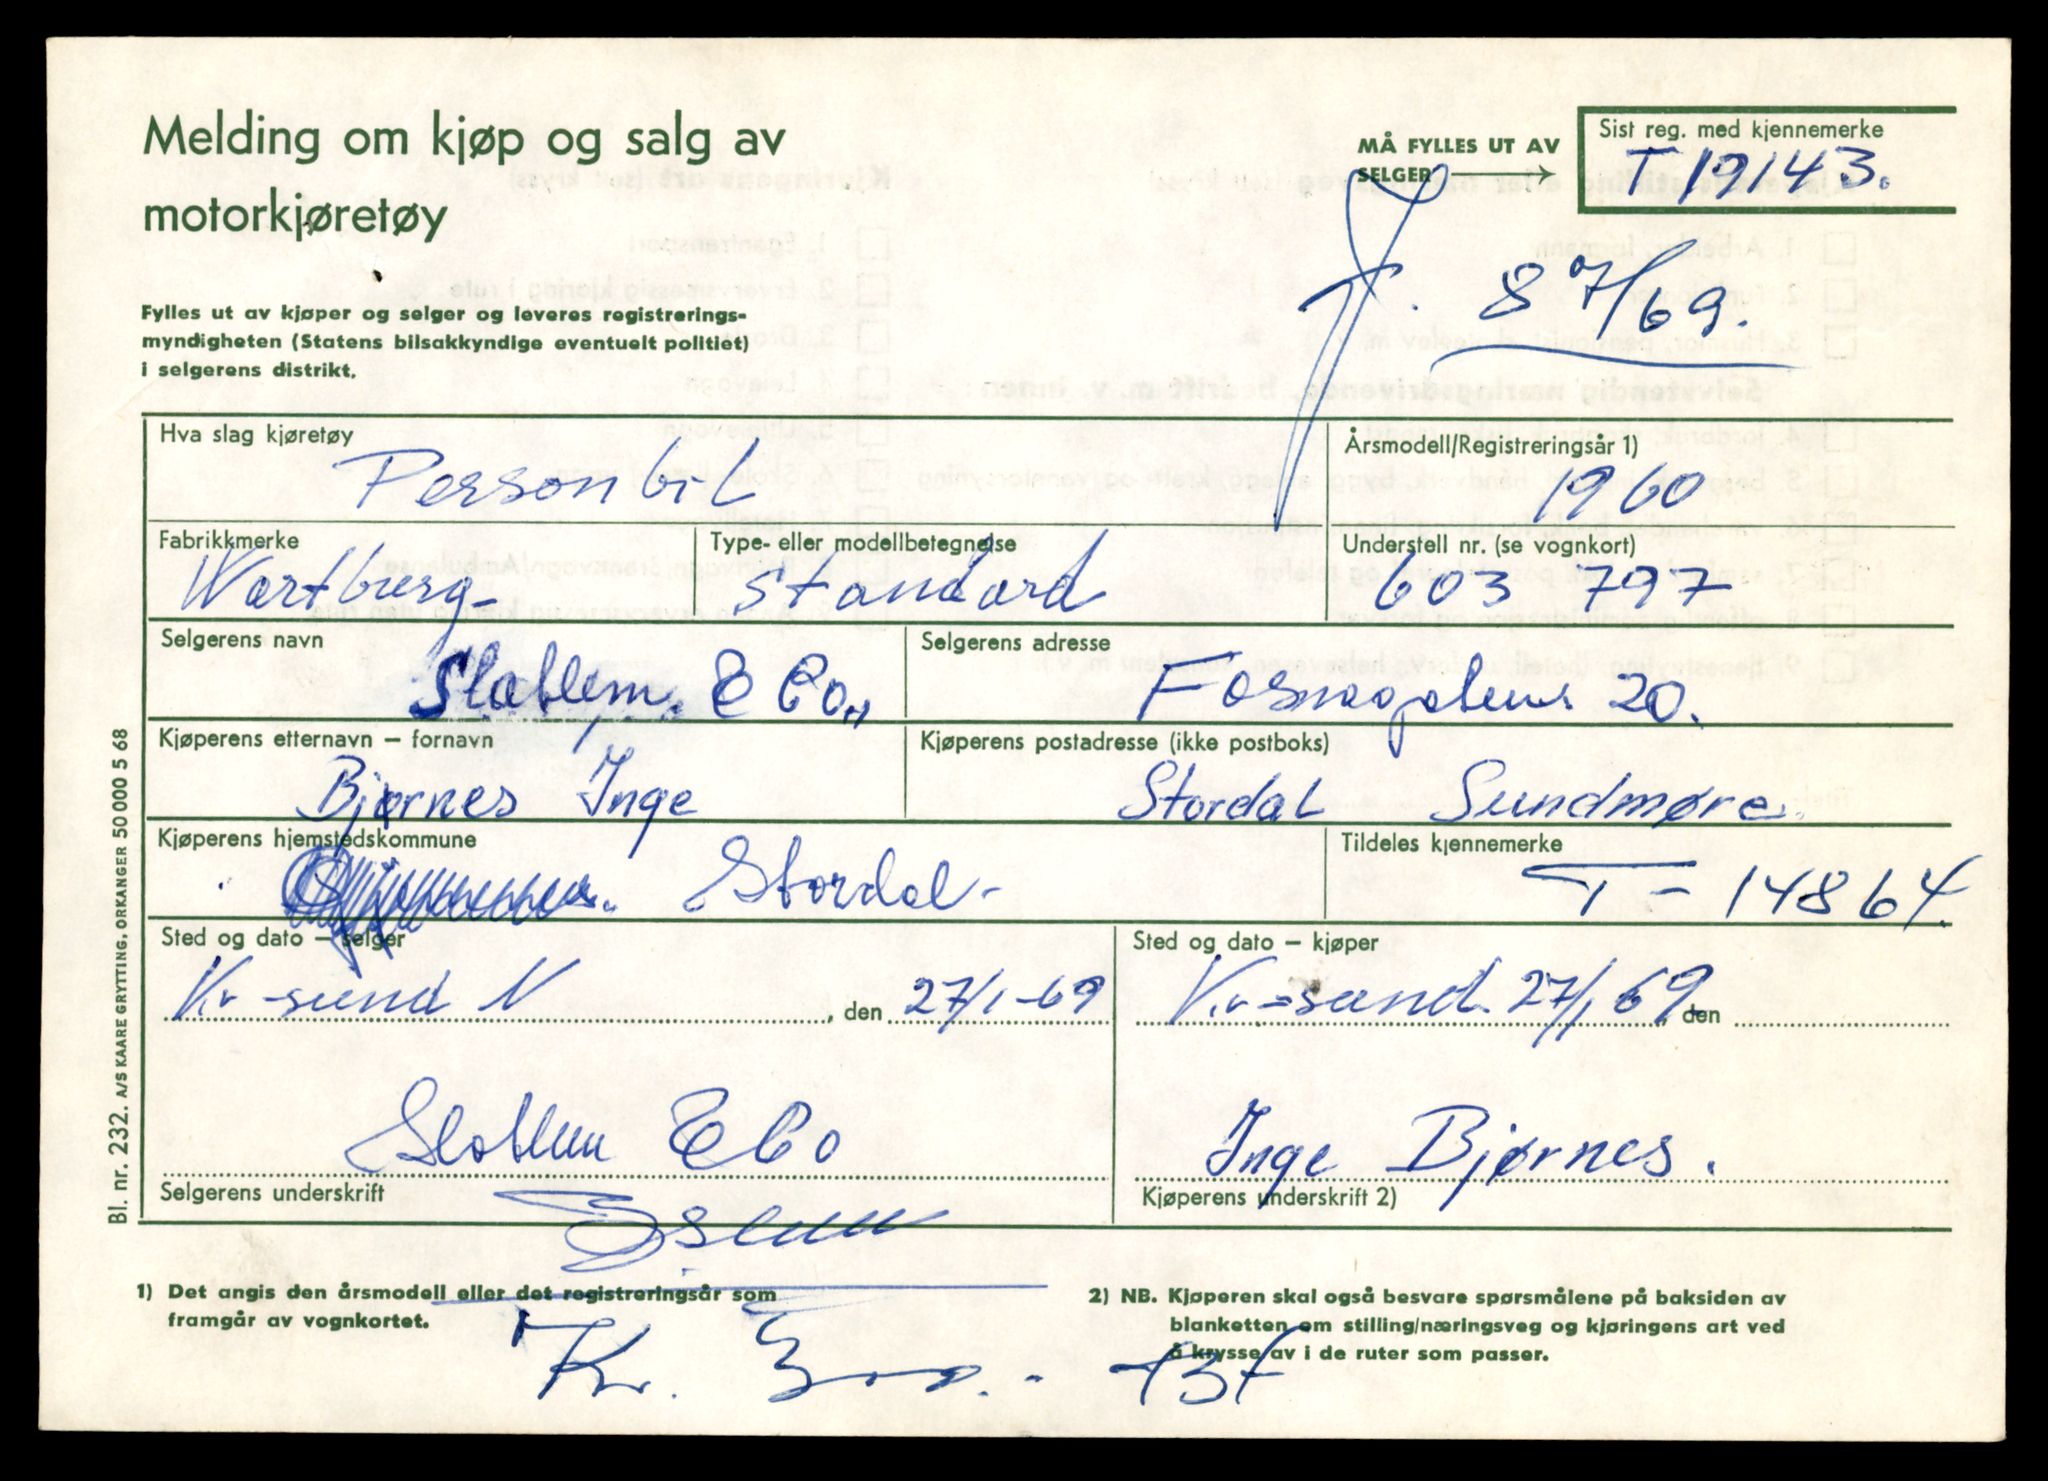 Melding om kjøp og salg av
motorkjøretøy
MÅ FYLLES UT AV
SELGER →
Sist reg. med kjennemerke
T 19143.
8 7/69.
Fylles ut av kjøper og selger og leveres registrerings-
myndigheten (Statens bilsakkyndige eventuelt politiet)
i selgerens distrikt.
Hva slag kjøretøy
Personbil
Årsmodell/Registreringsår 1)
1960
Fabrikkmerke
Wartburg
Type- eller modellbetegnelse
Standard
Understell nr. (se vognkort)
603 797
Selgerens navn
& Co.
Selgerens adresse
Fosnagatens 20.
Kjøperens etternavn – fornavn
Bjørnes Inge
Kjøperens postadresse (ikke postboks)
Stordal Sundmøre.
Kjøperens hjemstedskommune
Stordal-
Tildeles kjennemerke
T – 14864.
Sted og dato – selger
Kr-sund N, den 27/1-69
Sted og dato – kjøper
Kr-sund. 27/1 69, den
& Co
Selgerens underskrift
Inge Bjørnes.
Kjøperens underskrift 2)
1) Det angis den årsmodell eller det registreringsår som
framgår av vognkortet.
2) NB. Kjøperen skal også besvare spørsmålene på baksiden av
blanketten om stilling/næringsveg og kjøringens art ved
å krysse av i de ruter som passer.
Kr.
Bl. nr. 232. A/S KAARE GRYTTING, ORKANGER 50 000 5 68